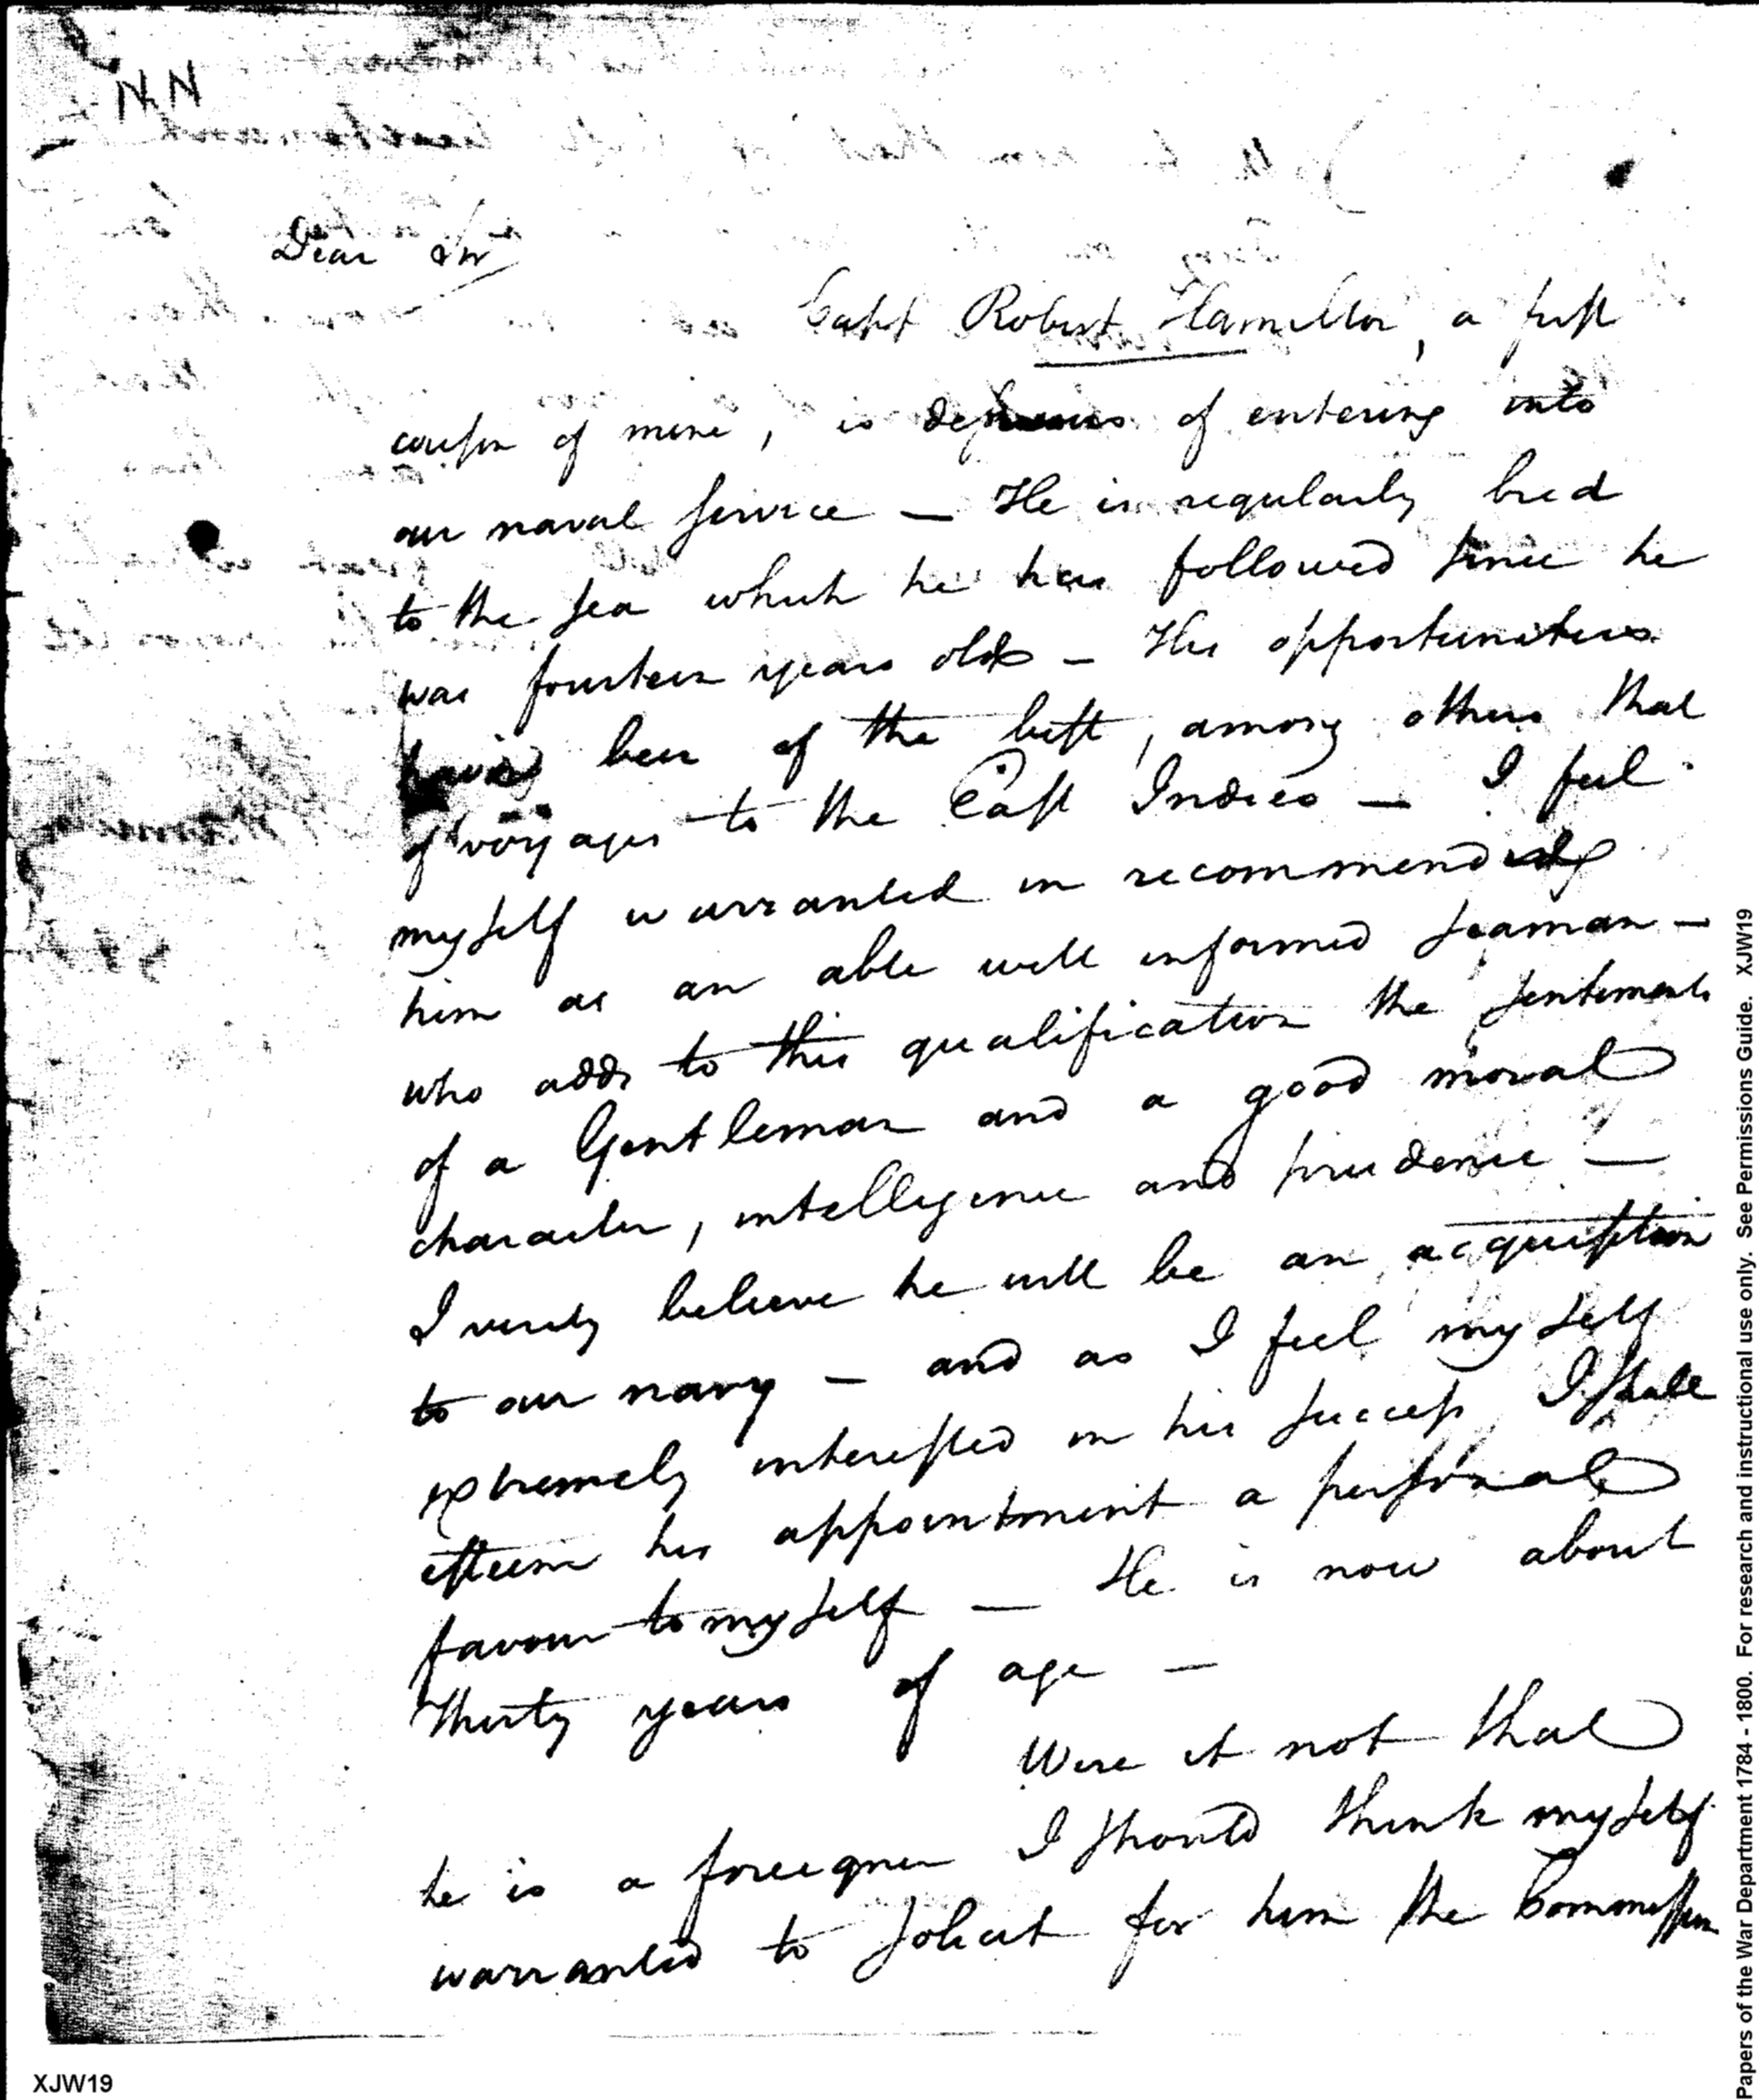 NN
Dear Sir
Capt Robert Hamilton, a first
cousin of mine, is desirous of entering into
our naval service — He is regularly bred
to the sea which he has followed since he
was fourteen years old — His opportunities
having been of the best, among others that
of voyages to the East Indies — I feel
myself warranted in recommending
him as an able well informed seaman —
who adds to this qualification the sentiments
of a Gentleman and a good moral
character, intelligence and prudence —
I verily believe he will be an acquisition
to our navy — and as I feel myself
extremely interested in his success I shall
esteem his appointment a personal
favour to myself — He is now about
Thirty years of age —
Were it not that
he is a foreigner I should think myself
warranted to solicit for him the Commission
XJW19
Papers of the War Department 1784 - 1800. For research and instructional use only. See Permissions Guide. XJW19